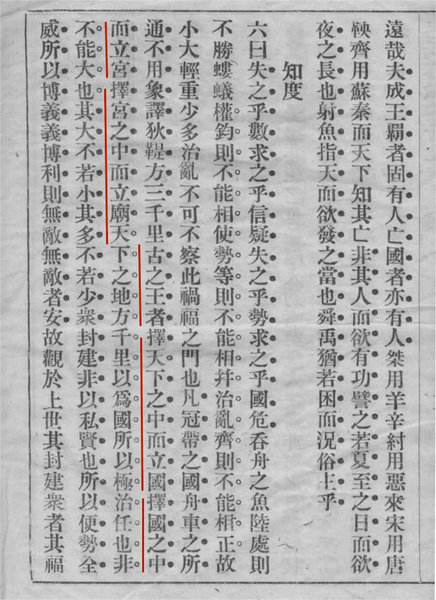 遠哉夫成王霸者固有人亡國者亦有人桀用羊辛紂用惡來宋用唐
鞅齊用蘇秦而天下知其亡非其人而欲有功譬之若夏至之日而欲
夜之長也射魚指天而欲發之當也舜禹猶若困而況俗主乎
知度
六曰失之乎數求之乎信疑失之乎勢求之乎國危吞舟之魚陸處則
不勝螻蟻權鈞則不能相使勢等則不能相幷治亂齊則不能相正故
小大輕重少多治亂不可不察此禍福之門也凡冠帶之國舟車之所
通不用象譯狄鞮方三千里古之王者擇天下之中而立國擇國之中
而立宮擇宮之中而立廟天下之地方千里以爲國所以極治任也非
不能大也其大不若小其多不若少衆封建非以私賢也所以便勢全
威所以博義義博利則無敵無敵者安故觀於上世其封建衆者其福